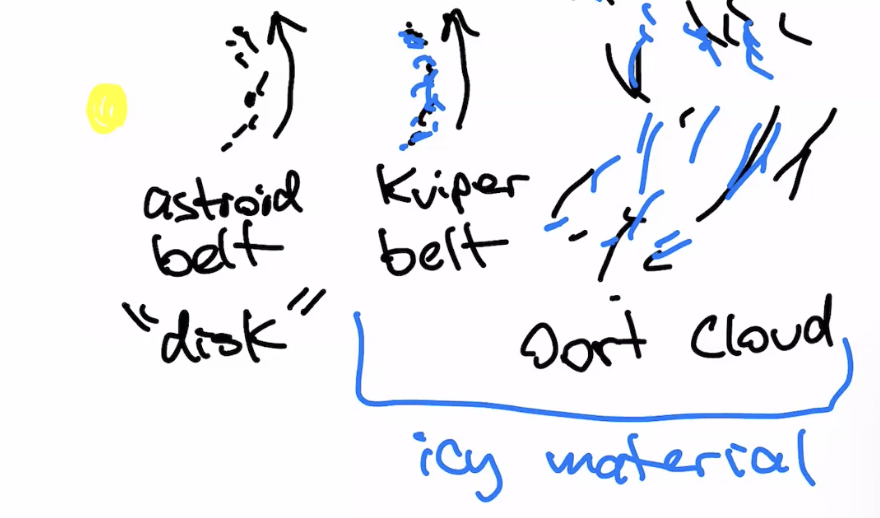 astroid
belt
Kuiper
belt
"disk"
Oort Cloud
icy material